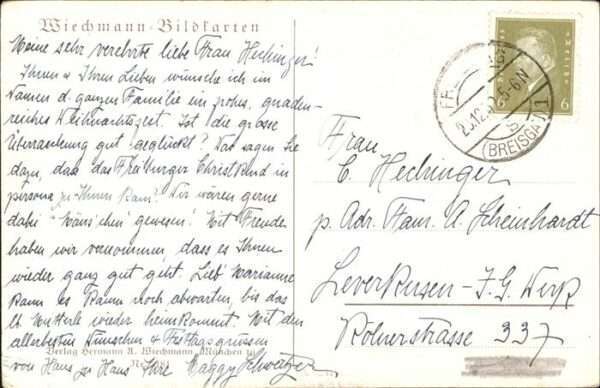 Wiechmann-Bildkarten
Meine sehr verehrte liebe Frau Hechinger!
Ihnen u Ihren Lieben wünsche ich im
Namen d. ganzen Familie ein frohes, gnaden-
reiches Weihnachtsfest. Ist die grosse
Überraschung gut geglückt? Was sagen Sie
dazu, dass das Freiburger Christkind in
persona zu Ihnen kam? Wir wären gerne
dabei "Mäus'chen" gewesen! Mit Freude
haben wir vernommen, dass es Ihnen
wieder ganz gut geht. Lieb' Marianne
kann es kaum noch abwarten, bis das
lb. Mutterle wieder heimkommt. Mit den
allerbesten Wünschen & Festtagsgrüssen
von Haus zu Haus Ihre Maggy Schweizer
Verlag Hermann A. Wiechmann, München
Frau
C. Hechinger
p. Adr. Fam. A. Scheinhardt
Leverkusen - I.G. Werk
Kölnerstrasse 337
(BREISGAU) 1
5-6 N
6
6